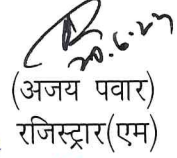 20.6.23
(अजय पवार)
रजिस्ट्रार(एम)